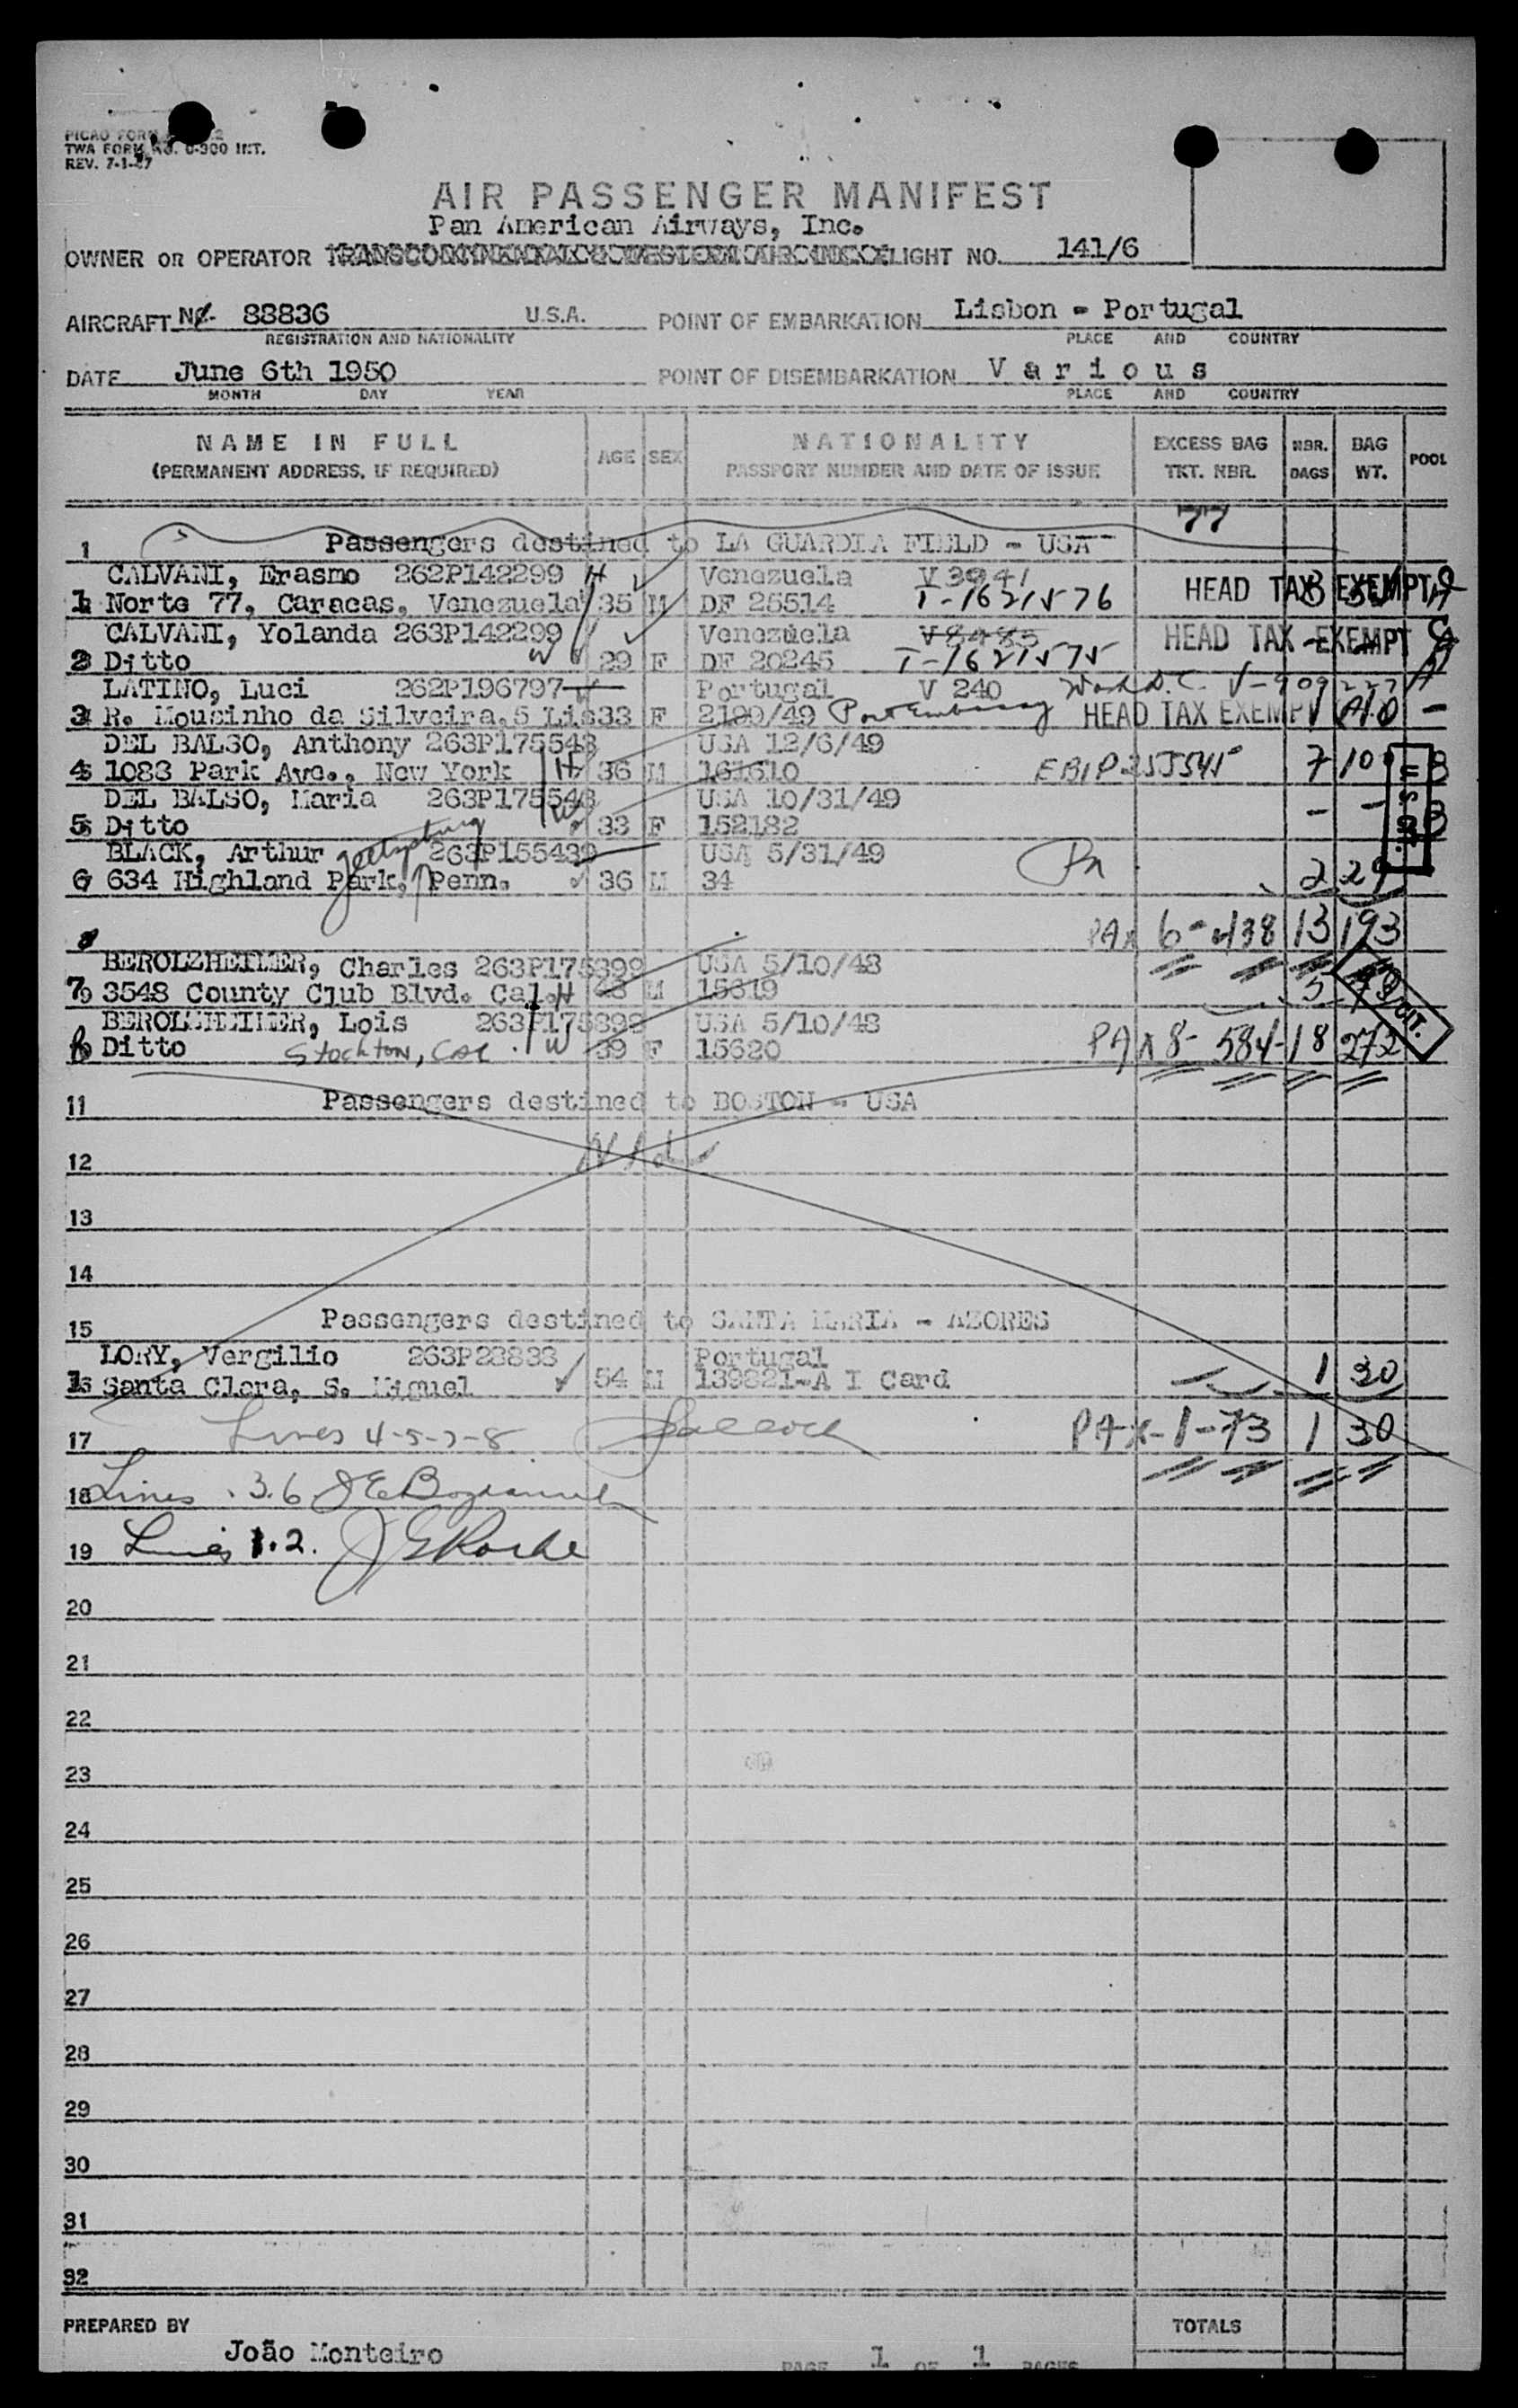 PICAO FORM
TWA FORM NO. 0-300 INT.
REV. 7-1-47
AIR PASSENGER MANIFEST
Pan American Airways, Inc.
OWNER OR OPERATOR FLIGHT NO. 141/6
AIRCRAFT NC- 88836 U.S.A. POINT OF EMBARKATION Lisbon - Portugal
REGISTRATION AND NATIONALITY PLACE AND COUNTRY
DATE June 6th 1950 POINT OF DISEMBARKATION Various
MONTH DAY YEAR PLACE AND COUNTRY
NAME IN FULL AGE SEX NATIONALITY EXCESS BAG NBR. BAG POOL
(PERMANENT ADDRESS, IF REQUIRED) PASSPORT NUMBER AND DATE OF ISSUE TKT. NBR. BAGS WT.
77
1 Passengers destined to LA GUARDIA FIELD - USA
CALVANI, Erasmo 262P142299 H Venezuela V 3941
1 Norte 77, Caracas, Venezuela 35 M DF 25514 T-1621576 HEAD TAX EXEMPT
CALVANI, Yolanda 263P142299 Venezuela V 8485
2 Ditto W 29 F DF 20245 T-1621575 HEAD TAX EXEMPT
LATINO, Luci 262P196797 Portugal V 240 Wash D.C. V-909227
3 R. Mousinho da Silveira, 5 Lis 33 F 2190/49 Port Embassy HEAD TAX EXEMPT
DEL BALSO, Anthony 263P175548 USA 12/6/49
4 1083 Park Ave., New York H 36 M 161610 7 10 B
DEL BALSO, Maria 263P175548 USA 10/31/49
5 Ditto W 33 F 152182 - - B
U.S. CIT.
BLACK, Arthur Gettysburg 263P155439 USA 5/31/49
6 634 Highland Park, Penn. 36 M 34 2 29
8 PAX 6-438 13 193
BEROLZHEIMER, Charles 263P175899 USA 5/10/48
7 3548 County Club Blvd. Cal. H 48 M 15619 5 79
BEROLZHEIMER, Lois 263P175899 USA 5/10/48
8 Ditto Stockton, Cal W 39 F 15620 PAX 8-584-18 272
11 Passengers destined to BOSTON - USA
12 NIL
13
14
15 Passengers destined to SANTA MARIA - AZORES
LORY, Vergilio 263P28838 Portugal
1 Santa Clara, S. Miguel 54 M 139821-A I Card 1 30
17 Lines 4-5-7-8 PAX-1-73 1 30
18 Lines 3.6
19 Lines 1.2.
20
21
22
23
24
25
26
27
28
29
30
31
32
PREPARED BY TOTALS
João Monteiro PAGE 1 OF 1 PAGES